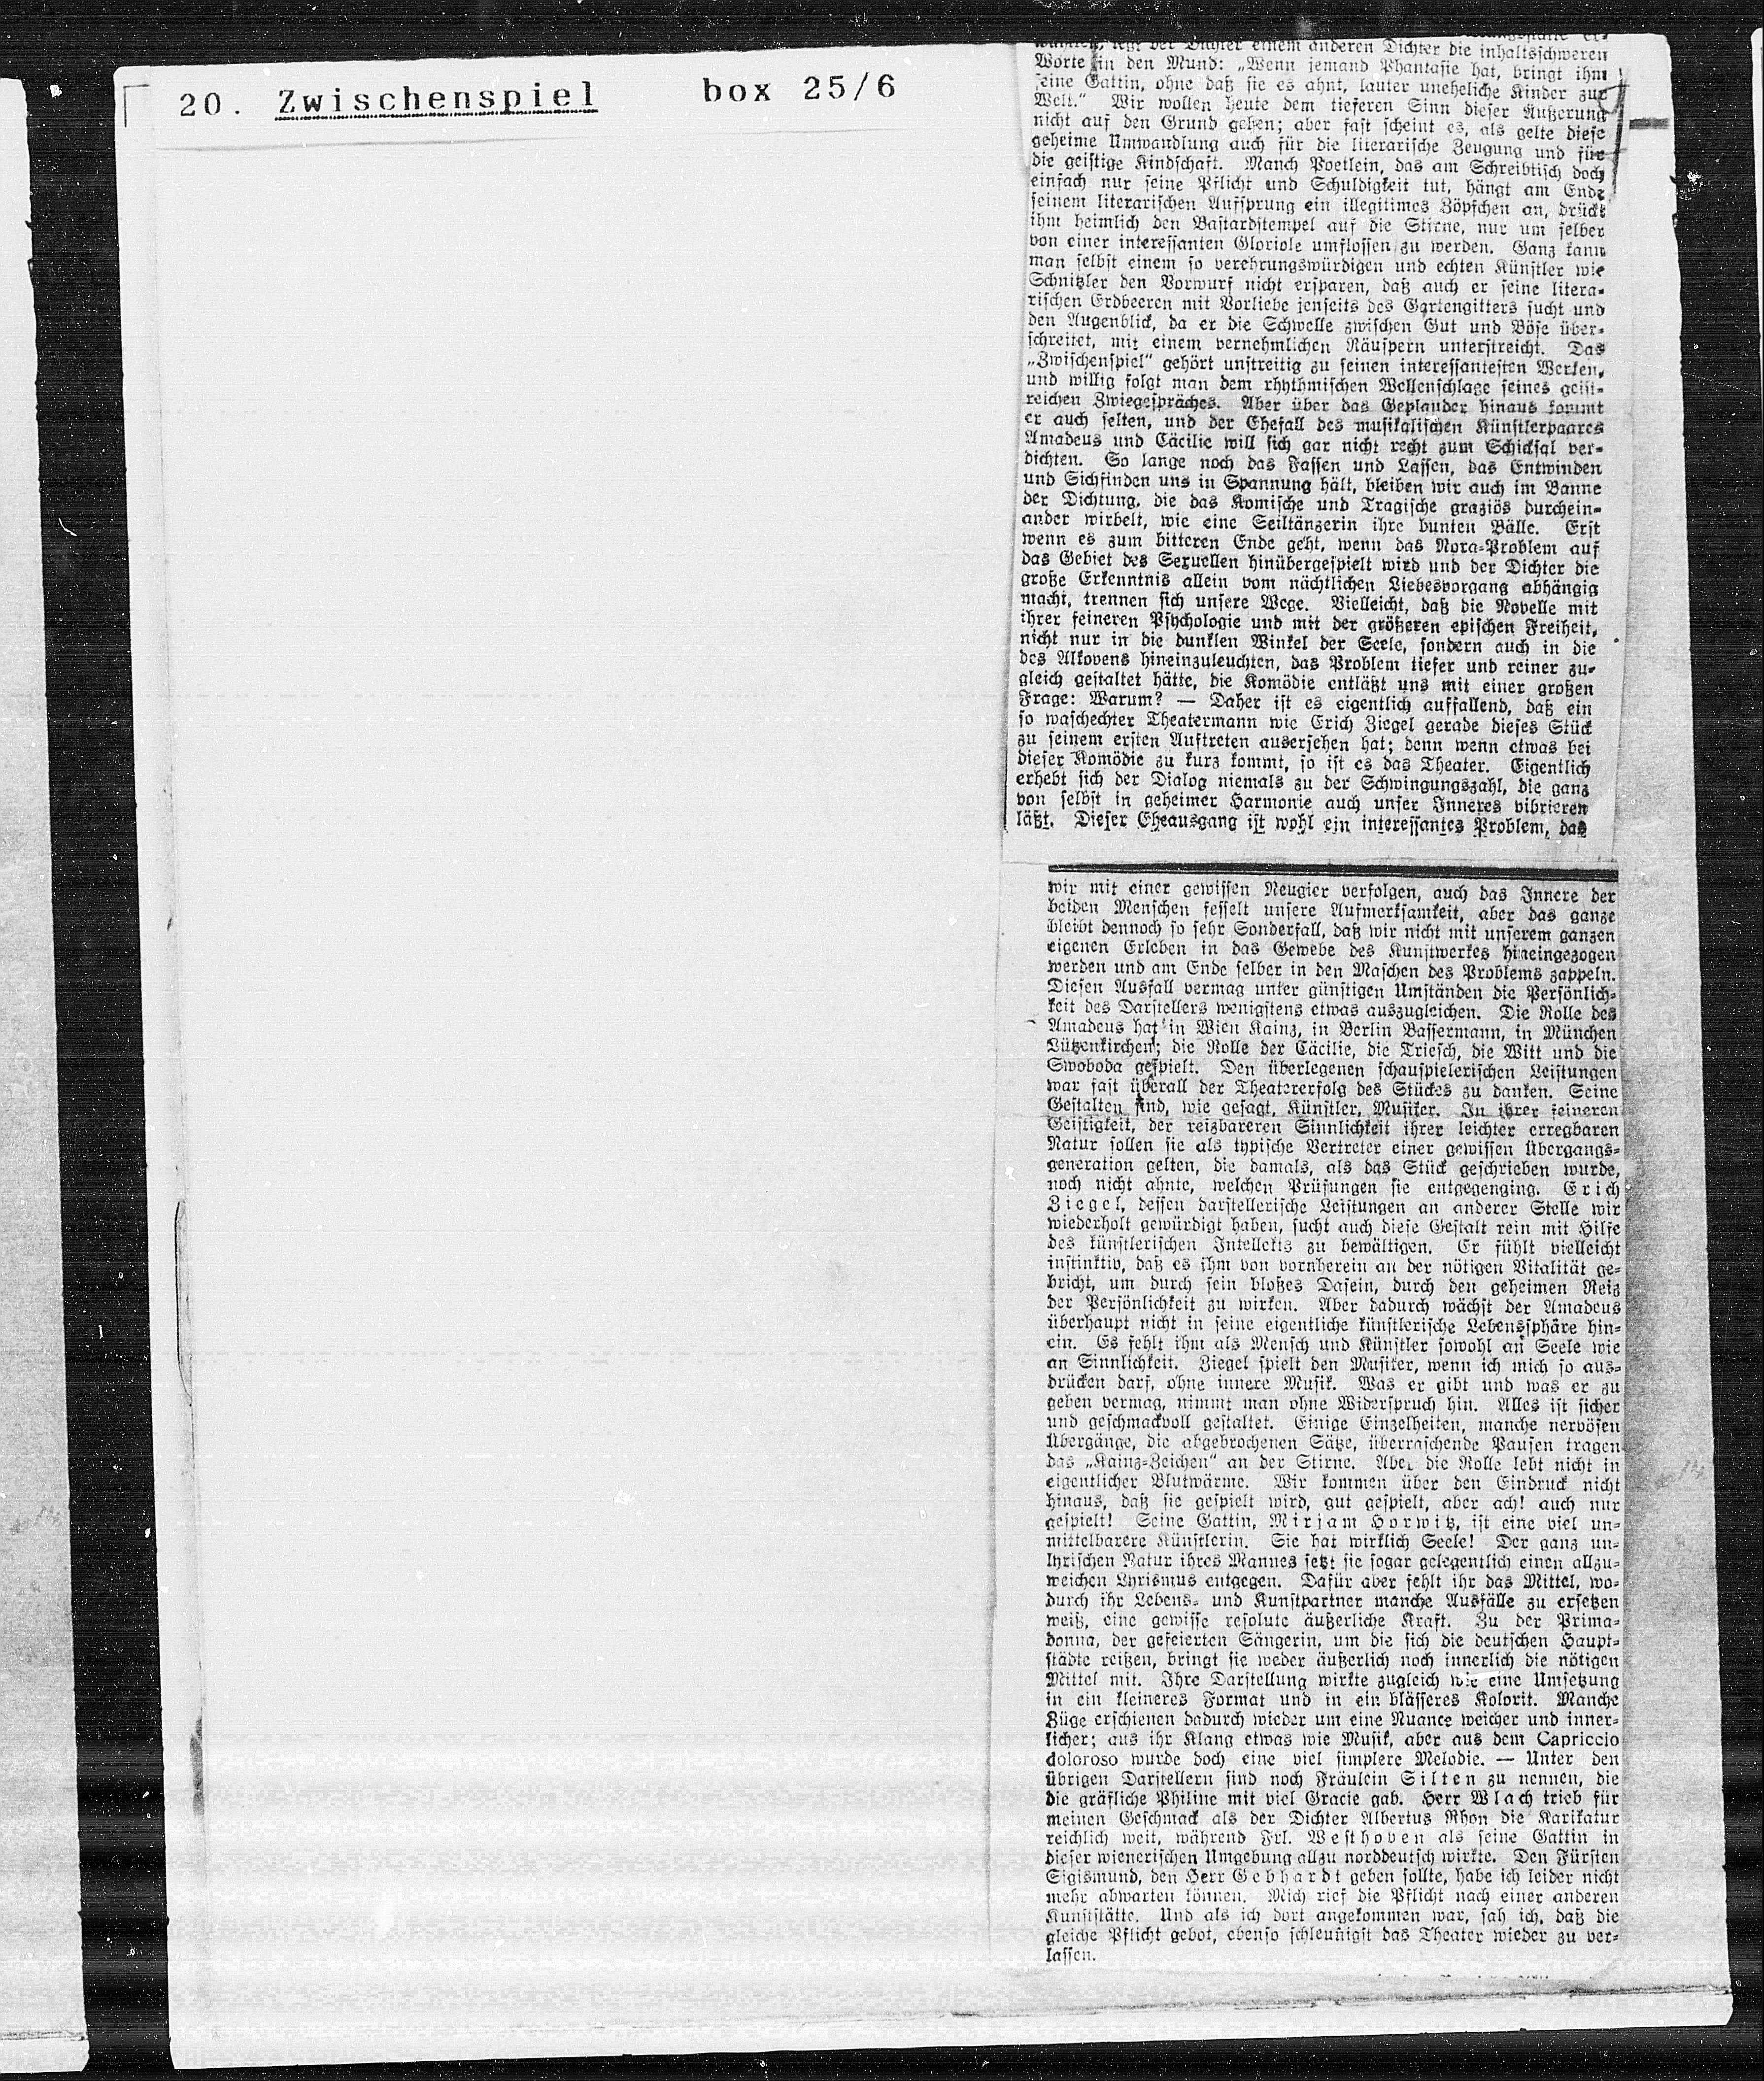 20. Zwischenspiel box 25/6
legt der Dichter einem anderen Dichter die inhaltsschweren
Worte in den Mund: „Wenn jemand Phantasie hat, bringt ihm
seine Gattin, ohne daß sie es ahnt, lauter uneheliche Kinder zur
Welt.“ Wir wollen heute dem tieferen Sinn dieser Äußerung
nicht auf den Grund gehen; aber fast scheint es, als gelte diese
geheime Umwandlung auch für die literarische Zeugung und für
die geistige Kindschaft. Manch Poetlein, das am Schreibtisch doch
einfach nur seine Pflicht und Schuldigkeit tut, hängt am Ende
seinem literarischen Aufsprung ein illegitimes Zöpfchen an, drückt
ihm heimlich den Bastardstempel auf die Stirne, nur um selber
von einer interessanten Gloriole umflossen zu werden. Ganz kann
man selbst einem so verehrungswürdigen und echten Künstler wie
Schnitzler den Vorwurf nicht ersparen, daß auch er seine litera-
rischen Erdbeeren mit Vorliebe jenseits des Gartengitters sucht und
den Augenblick, da er die Schwelle zwischen Gut und Böse über-
schreitet, mit einem vernehmlichen Räuspern unterstreicht. Das
„Zwischenspiel“ gehört unstreitig zu seinen interessantesten Werken,
und willig folgt man dem rhythmischen Wellenschlage seines geist-
reichen Zwiegespräches. Aber über das Geplauder hinaus kommt
er auch selten, und der Ehefall des musikalischen Künstlerpaares
Amadeus und Cäcilie will sich gar nicht recht zum Schicksal ver-
dichten. So lange noch das Fassen und Lassen, das Entwinden
und Sichfinden uns in Spannung hält, bleiben wir auch im Banne
der Dichtung, die das Komische und Tragische graziös durchein-
ander wirbelt, wie eine Seiltänzerin ihre bunten Bälle. Erst
wenn es zum bitteren Ende geht, wenn das Nora-Problem auf
das Gebiet des Sexuellen hinübergespielt wird und der Dichter die
große Erkenntnis allein vom nächtlichen Liebesvorgang abhängig
macht, trennen sich unsere Wege. Vielleicht, daß die Novelle mit
ihrer feineren Psychologie und mit der größeren epischen Freiheit,
nicht nur in die dunklen Winkel der Seele, sondern auch in die
des Alkovens hineinzuleuchten, das Problem tiefer und reiner zu-
gleich gestaltet hätte, die Komödie entläßt uns mit einer großen
Frage: Warum? — Daher ist es eigentlich auffallend, daß ein
so waschechter Theatermann wie Erich Ziegel gerade dieses Stück
zu seinem ersten Auftreten ausersehen hat; denn wenn etwas bei
dieser Komödie zu kurz kommt, so ist es das Theater. Eigentlich
erhebt sich der Dialog niemals zu der Schwingungszahl, die ganz
von selbst in geheimer Harmonie auch unser Inneres vibrieren
läßt. Dieser Eheausgang ist wohl ein interessantes Problem, das
wir mit einer gewissen Neugier verfolgen, auch das Innere der
beiden Menschen fesselt unsere Aufmerksamkeit, aber das ganze
bleibt dennoch so sehr Sonderfall, daß wir nicht mit unserem ganzen
eigenen Erleben in das Gewebe des Kunstwerkes hineingezogen
werden und am Ende selber in den Maschen des Problems zappeln.
Diesen Ausfall vermag unter günstigen Umständen die Persönlich-
keit des Darstellers wenigstens etwas auszugleichen. Die Rolle des
Amadeus hat in Wien Kainz, in Berlin Bassermann, in München
Lützenkirchen; die Rolle der Cäcilie, die Triesch, die Witt und die
Swoboda gespielt. Den überlegenen schauspielerischen Leistungen
war fast überall der Theatererfolg des Stückes zu danken. Seine
Gestalten sind, wie gesagt, Künstler, Musiker. In ihrer feineren
Geistigkeit, der reizbareren Sinnlichkeit ihrer leichter erregbaren
Natur sollen sie als typische Vertreter einer gewissen Übergangs-
generation gelten, die damals, als das Stück geschrieben wurde,
noch nicht ahnte, welchen Prüfungen sie entgegenging. Erich
Ziegel, dessen darstellerische Leistungen an anderer Stelle wir
wiederholt gewürdigt haben, sucht auch diese Gestalt rein mit Hilfe
des künstlerischen Intellekts zu bewältigen. Er fühlt vielleicht
instinktiv, daß es ihm von vornherein an der nötigen Vitalität ge-
bricht, um durch sein bloßes Dasein, durch den geheimen Reiz
der Persönlichkeit zu wirken. Aber dadurch wächst der Amadeus
überhaupt nicht in seine eigentliche künstlerische Lebenssphäre hin-
ein. Es fehlt ihm als Mensch und Künstler sowohl an Seele wie
an Sinnlichkeit. Ziegel spielt den Musiker, wenn ich mich so aus-
drücken darf, ohne innere Musik. Was er gibt und was er zu
geben vermag, nimmt man ohne Widerspruch hin. Alles ist sicher
und geschmackvoll gestaltet. Einige Einzelheiten, manche nervösen
Übergänge, die abgebrochenen Sätze, überraschende Pausen tragen
das „Kainz-Zeichen“ an der Stirne. Aber die Rolle lebt nicht in
eigentlicher Blutwärme. Wir kommen über den Eindruck nicht
hinaus, daß sie gespielt wird, gut gespielt, aber ach! auch nur
gespielt! Seine Gattin, Mirjam Horwitz, ist eine viel un-
mittelbarere Künstlerin. Sie hat wirklich Seele! Der ganz un-
lyrischen Natur ihres Mannes setzt sie sogar gelegentlich einen allzu-
weichen Lyrismus entgegen. Dafür aber fehlt ihr das Mittel, wo-
durch ihr Lebens- und Kunstpartner manche Ausfälle zu ersetzen
weiß, eine gewisse resolute äußerliche Kraft. Zu der Prima-
donna, der gefeierten Sängerin, um die sich die deutschen Haupt-
städte reißen, bringt sie weder äußerlich noch innerlich die nötigen
Mittel mit. Ihre Darstellung wirkte zugleich wie eine Umsetzung
in ein kleineres Format und in ein blässeres Kolorit. Manche
Züge erschienen dadurch wieder um eine Nuance weicher und inner-
licher; aus ihr Klang etwas wie Musik, aber aus dem Capriccio
doloroso wurde doch eine viel simplere Melodie. — Unter den
übrigen Darstellern sind noch Fräulein Silten zu nennen, die
die gräfliche Philine mit viel Gracie gab. Herr Wlach trieb für
meinen Geschmack als der Dichter Albertus Rhon die Karikatur
reichlich weit, während Frl. Westhoven als seine Gattin in
dieser wienerischen Umgebung allzu norddeutsch wirkte. Den Fürsten
Sigismund, den Herr Gebhardt geben sollte, habe ich leider nicht
mehr abwarten können. Mich rief die Pflicht nach einer anderen
Kunststätte. Und als ich dort angekommen war, sah ich, daß die
gleiche Pflicht gebot, ebenso schleunigst das Theater wieder zu ver-
lassen.